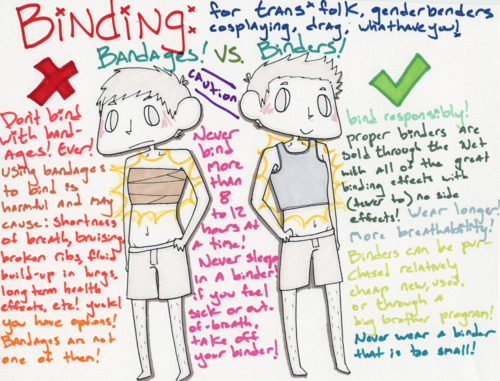 Binding:
for trans* folk, genderbenders
cosplaying, drag, whathaveyou!
Bandages! vs. Binders!
CAUTION
Don't bind
with band-
ages! Ever!
Using bandages
to bind is
harmful and may
cause: shortness
of breath, bruising
broken ribs, fluid
build-up in lungs,
long term health
effects, etc! yuck!
you have options!
Bandages are not
one of them!
Never
bind
more
than
8
to 12
hours at
a time!
Never sleep
in a binder!
if you feel
sick or out-
of-breath,
take off
your binder!
bind responsibly!
proper binders are
sold through the Net
with all of the great
binding effects with
(fewer to) no side
effects! Wear longer!
More breathability!
Binders can be pur-
chased relatively
cheap new, used,
or through a
big brother program!
Never wear a binder
that is too small!